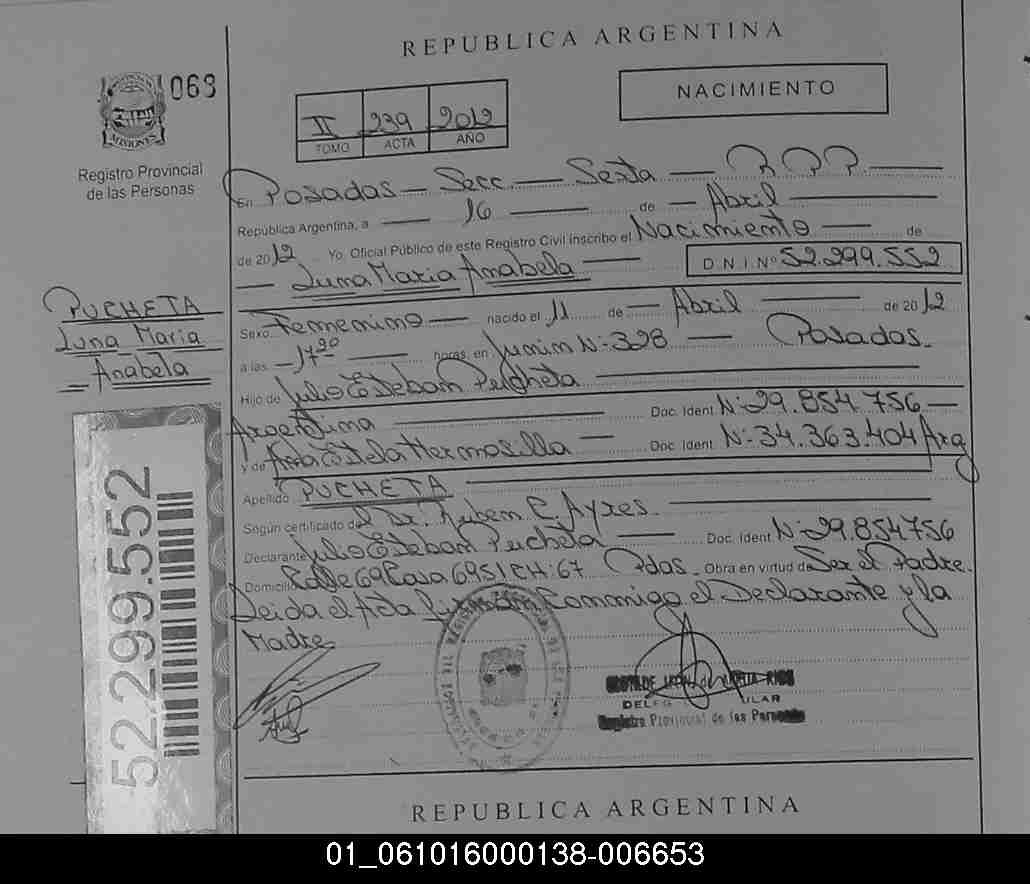 REPUBLICA ARGENTINA
068
NACIMIENTO
II 239 2012
TOMO ACTA AÑO
MISIONES
Registro Provincial
de las Personas
En Posadas - Secc. - Sexta - R.P.P.
Republica Argentina, a 16 de Abril
de 2012 Yo, Oficial Público de este Registro Civil inscribo el Nacimiento de
Luna Maria Anabela D N I Nº 52.299.552
PUCHETA
Luna Maria
Anabela
Sexo Femenino nacido el 11 de Abril de 2012
a las 17 20 horas, en Junin N: 328 Posadas.
Hijo de Julio Esteban Pucheta
Argentina Doc. Ident N: 29.854.756
y de Ana Estela Hermosilla Doc. Ident. N: 34.363.404 Arg
Apellido PUCHETA
Según certificado del Dr. Ruben E. Ayres.
Declarante Julio Esteban Pucheta Doc. Ident N: 29.854756
Domicilio Calle 69 Casa 6951 CH: 67 Pdas. Obra en virtud de Ser el Padre.
Leida el Acta Firman Conmigo el Declarante y la
Madre
52.299.552
Registro Provincial de las Personas
REPUBLICA ARGENTINA
01_061016000138-006653